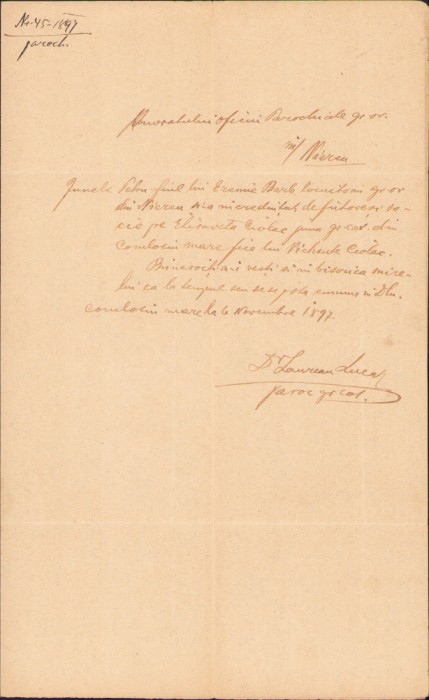 Nr. 45-1897
paroch.
Onoratului oficiu Parochiale gr. or.
in/ Nierău
Junele Petru fiul lui Eremie Barb locuitoriu gr. or
din Nierău si-a incredintat de fiitore so-
cie pe Elisaveta Ciolac juna gr. cat. din
Comlosiu mare fica lui Vichente Ciolac.
Binevoiti a-i vesti si in biserica mire-
lui ca la timpul seu se se pota cununa
Comlosiu mare la 6 Novembre 1897
Dr. Laurean Luca
paroc gr. cat.